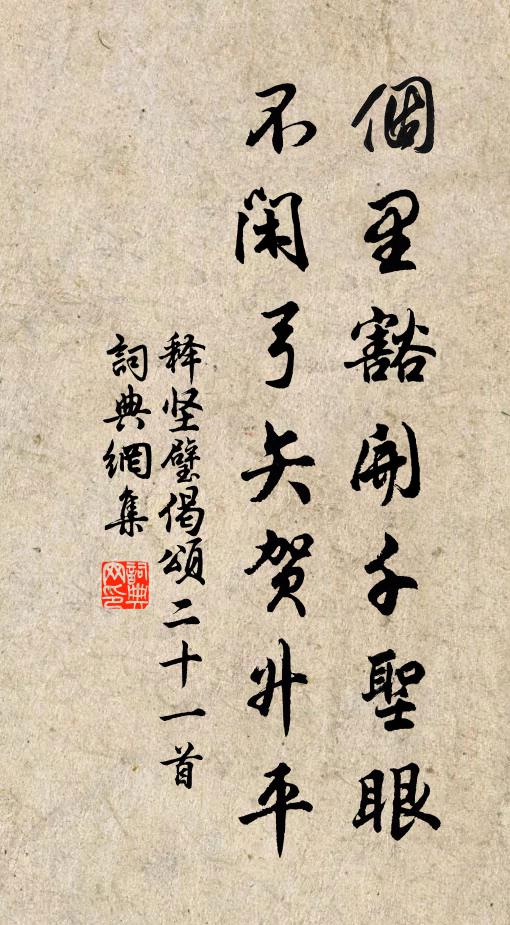 個里豁開千聖眼
不閑弓矢賀升平
释坚璧偈頌二十一首
詞典網集
詞典网印